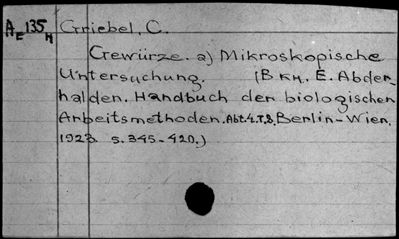 AE 135 H Griebel, C.
Gewürze. a) Mikroskopische
Untersuchung. (B KH. E. Abder-
halden. Handbuch der biologischen
Arbeitsmethoden. Abt. 4. T. 8. Berlin-Wien.
1923. S. 345-420.)